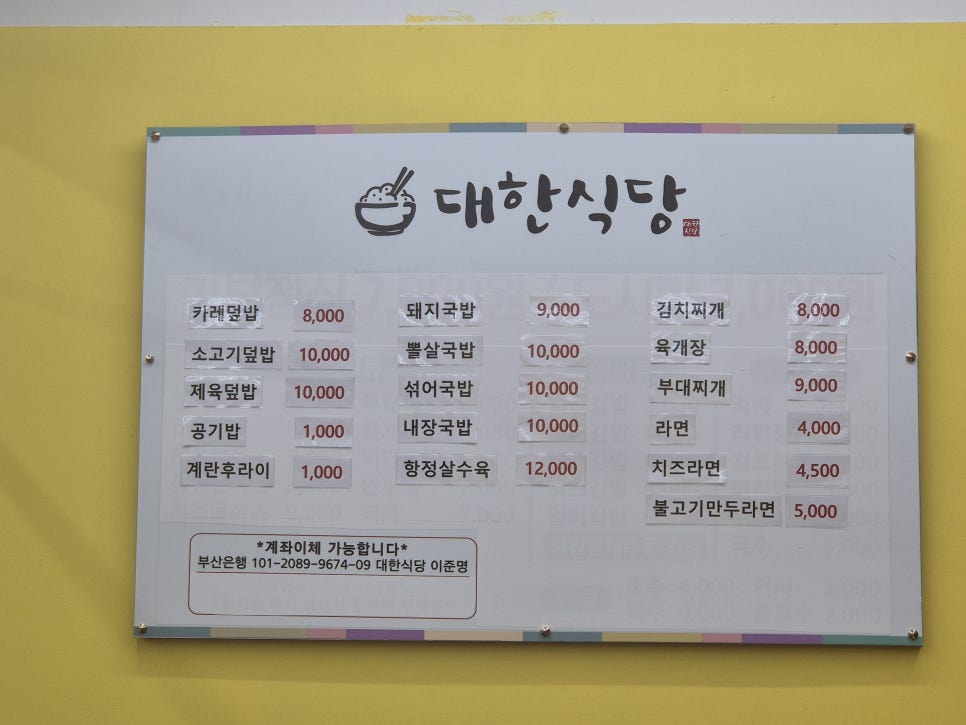 대한식당
대한
식당
카레덮밥 8,000
소고기덮밥 10,000
제육덮밥 10,000
공기밥 1,000
계란후라이 1,000
돼지국밥 9,000
뽈살국밥 10,000
섞어국밥 10,000
내장국밥 10,000
항정살수육 12,000
김치찌개 8,000
육개장 8,000
부대찌개 9,000
라면 4,000
치즈라면 4,500
불고기만두라면 5,000
*계좌이체 가능합니다*
부산은행 101-2089-9674-09 대한식당 이준명